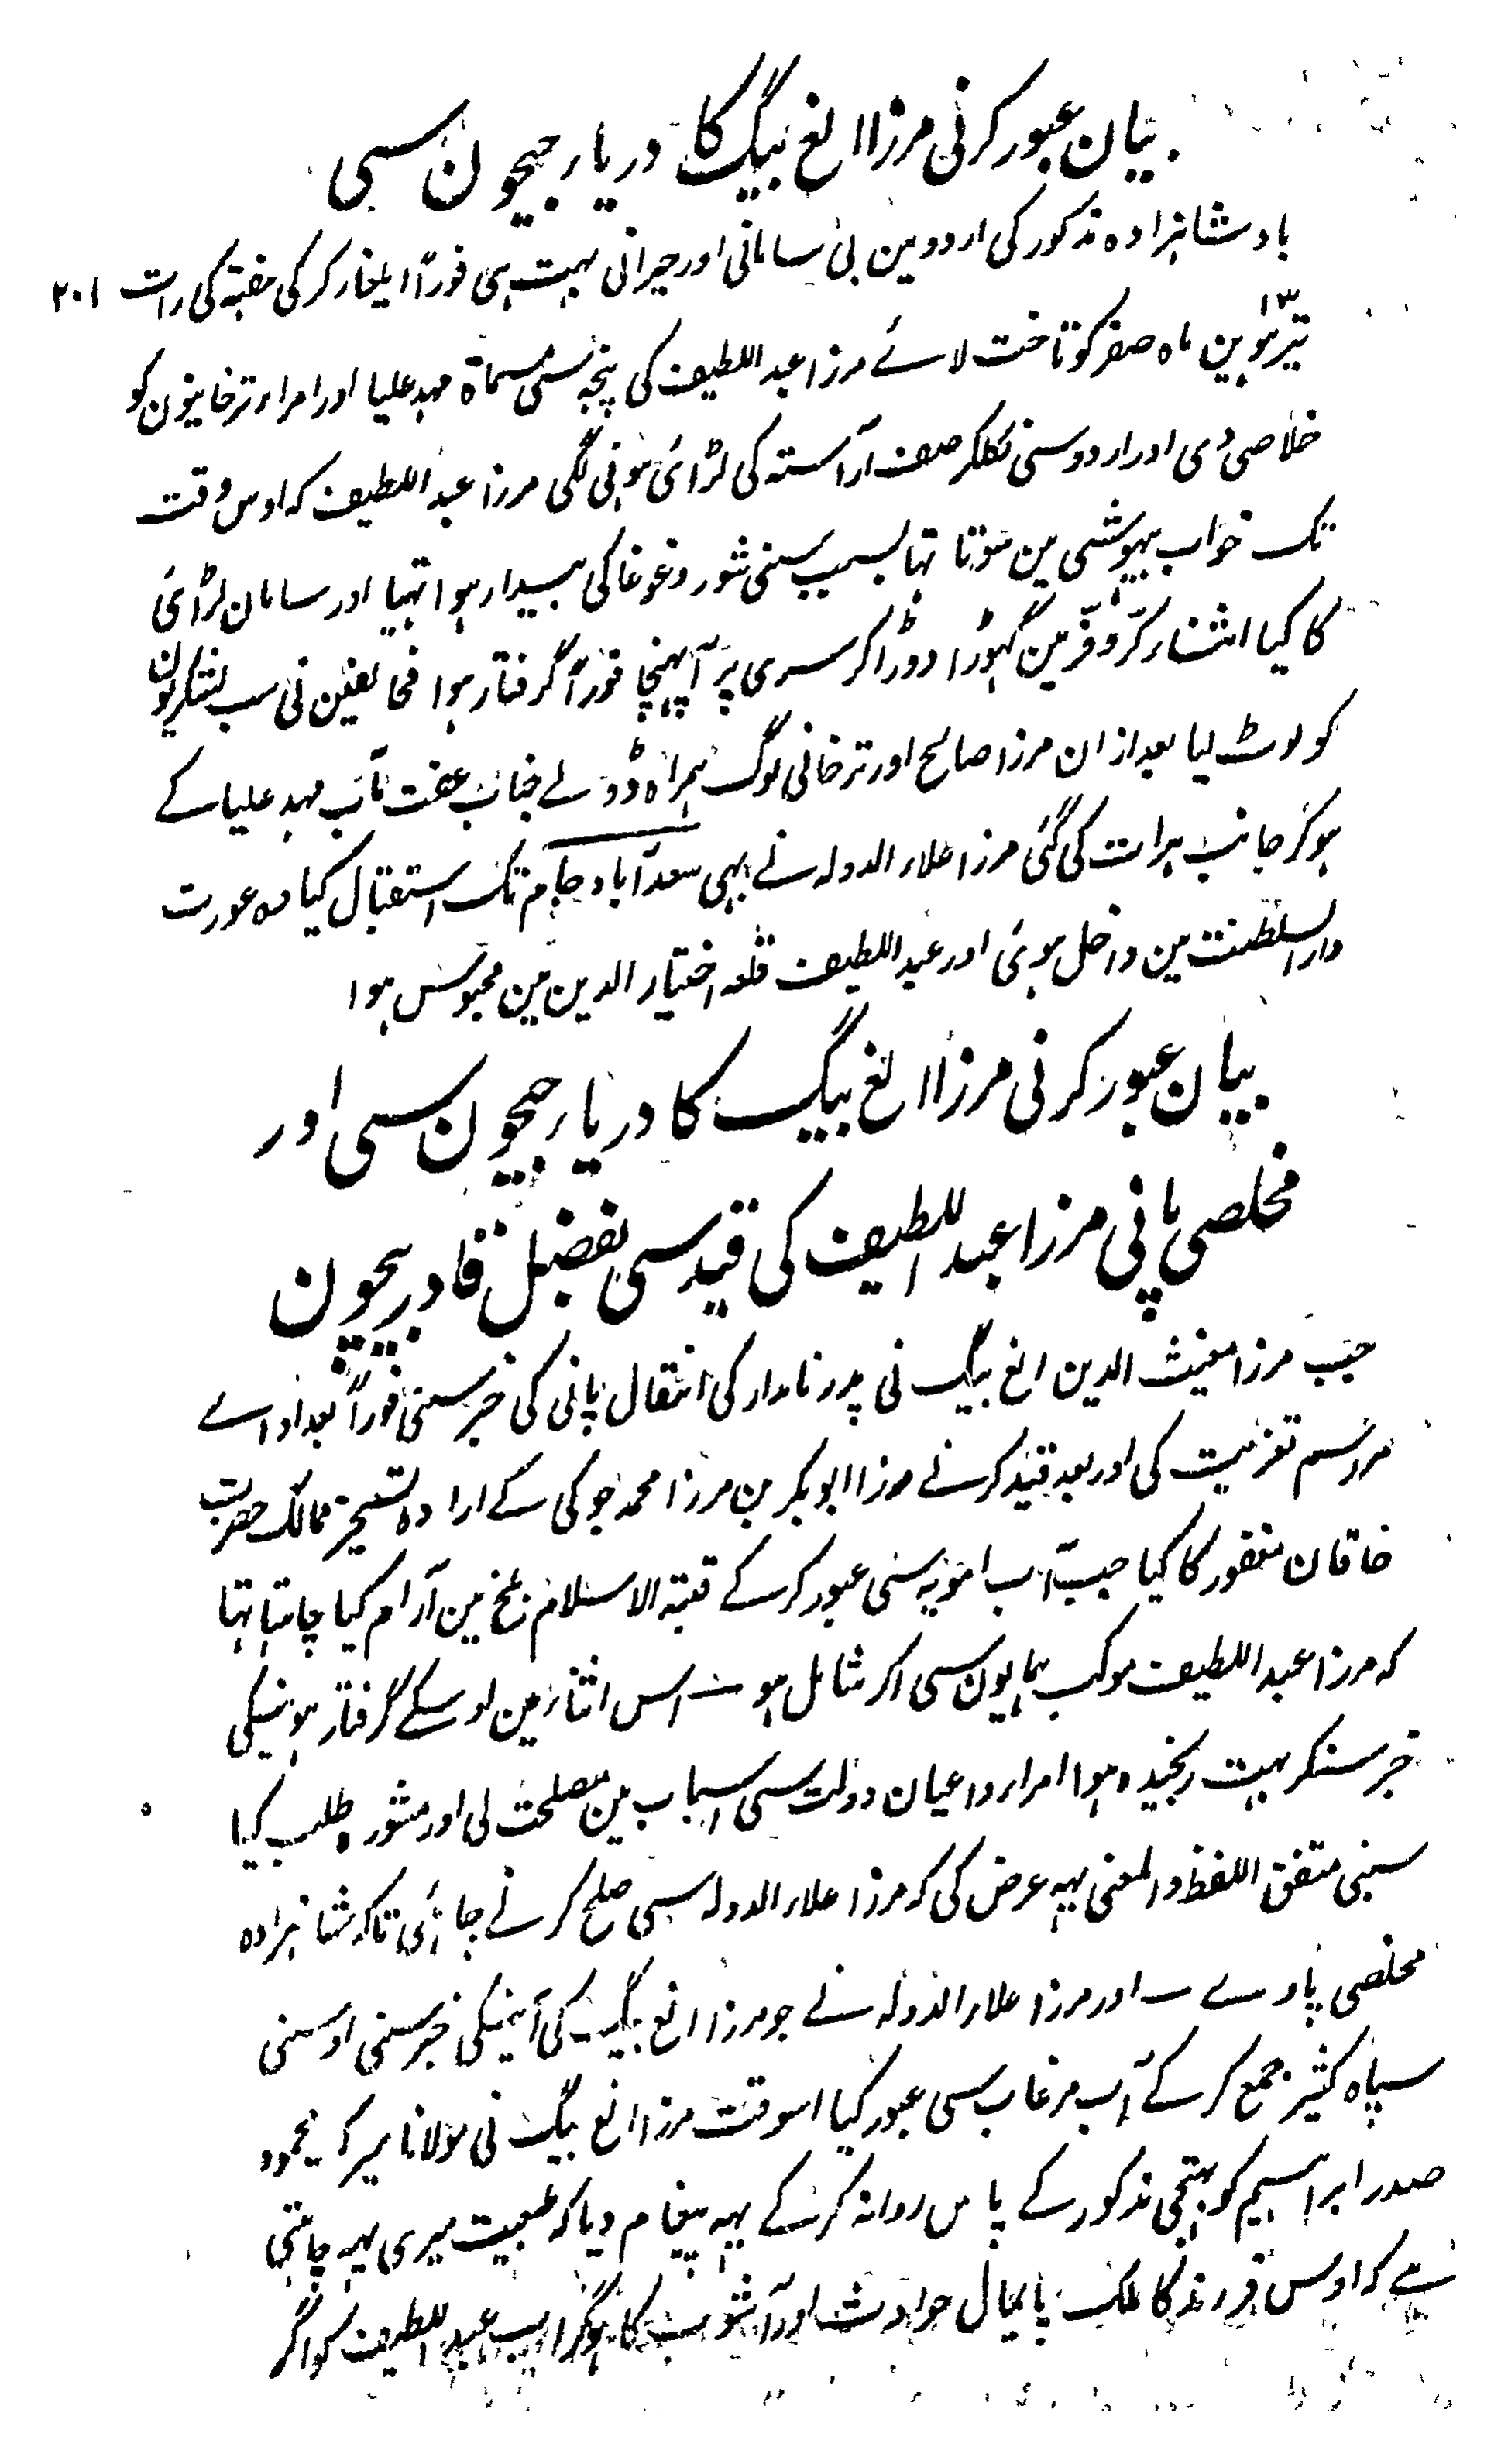 بیان عبور کرنی مرزا الغ بیگ کا دریاء جیحون سی
۲۰۱
بادشاہزادہ مذکور کی اردو مین بی سامانی اور حیرانی بہت ہی فوراً ایلغار کر کی ہفتہ کی رات
۱۳
تیرہوین ماہ صفر کو تاخت لائے مرزا عبد اللطیف کی پنجہ سی مسماة مہد علیا اور امراء ترخانیون کو
خلاصی دی اور اردو سنی نکلکر صف آراستہ کی لڑائی ہونی لگی مرزا عبد اللطیف کہ اوس وقت
تک خواب بیہوشی مین سوتا تہا بسبب سنی شور و غوغا کی بیدار ہوا تہیا اور سامان لڑائی
کا کیا اثناء کرّ و فرّ مین گہوڑا دوڑا کر سری پر آ پہنچا فوراً گرفتار ہوا مخالفین نی سب لشکریون
کو لوٹ لیا بعد ازان مرزا صالح اور ترخانی لوگ ہمراہ ڈولے جناب عفت مآب مہد علیا کے
ہو کر جانب ہرات کی گئی مرزا علاء الدولہ نے بہی سعد آباد جام تک استقبال کیا وہ عورت
دار السلطنت مین داخل ہوئی اور عبد اللطیف قلعہ اختیار الدین مین محبوس ہوا
بیان عبور کرنی مرزا الغ بیگ کا دریاء جیحون سی اور
مخلصی پانی مرزا عبد اللطیف کی قید سی بفضل قادر بیچون
جب مرزا مغیث الدین الغ بیگ نی پدر نامدار کی انتقال پانی کی خبر سنی فوراً بعد ادائے
مراسم تعزیت کی اور بعد قید کرنے مرزا ابو بکر بن مرزا محمد جوکی کے ارادہ تسخیر ممالک حضرت
خاقان مغفور کا کیا جب آب امویہ سنی عبور کر کے قبتہ الاسلام بلخ مین آرام کیا چاہتا تہا
کہ مرزا عبد اللطیف موکب ہمایون سی اکر شامل ہو اس اثناء مین اوسکے گرفتار ہونیکی
خبر سنکر بہت رنجیدہ ہوا امراء و اعیان دولت سی اسباب مین مصلحت لی اور مشورہ طلب کیا
سبنی متفق اللفظ و المعنی یہہ عرض کی کہ مرزا علاء الدولہ سی صلح کرنے چاہئی تاکہ شاہزادہ
مخلصی پاوے اور مرزا علاء الدولہ نے جو مرزا الغ بیگ کی آنیکی خبر سنی اوسنی
سپاہ کثیر جمع کر کے آب مرغاب سی عبور کیا اسوقت مرزا الغ بیگ نی مولانا میرک محمود
صدر ابراہیم کو بہتیجی مذکور کے پاس روانہ کر کے یہہ پیغام دیا کہ طبیعت میری یہہ چاہتی
ہے کہ اوس فرزند کا ملک پایمال حوادث اور آشوب کا ہو کر اب عبد اللطیف کو اگر